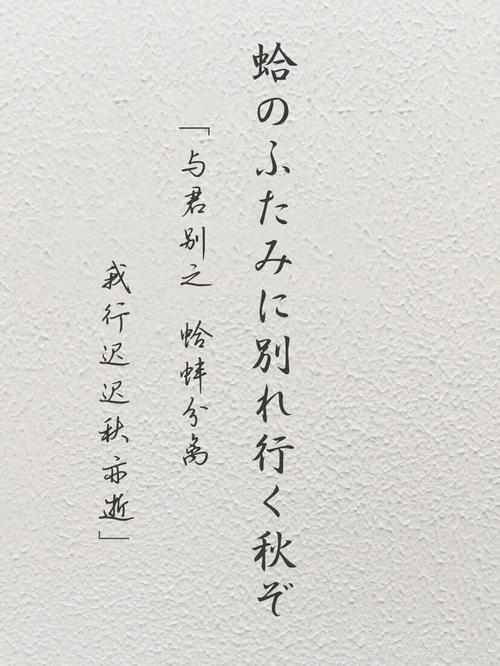 蛤のふたみに別れ行く秋ぞ
「与君别之 蛤蚌分离
我行迟迟秋亦逝」